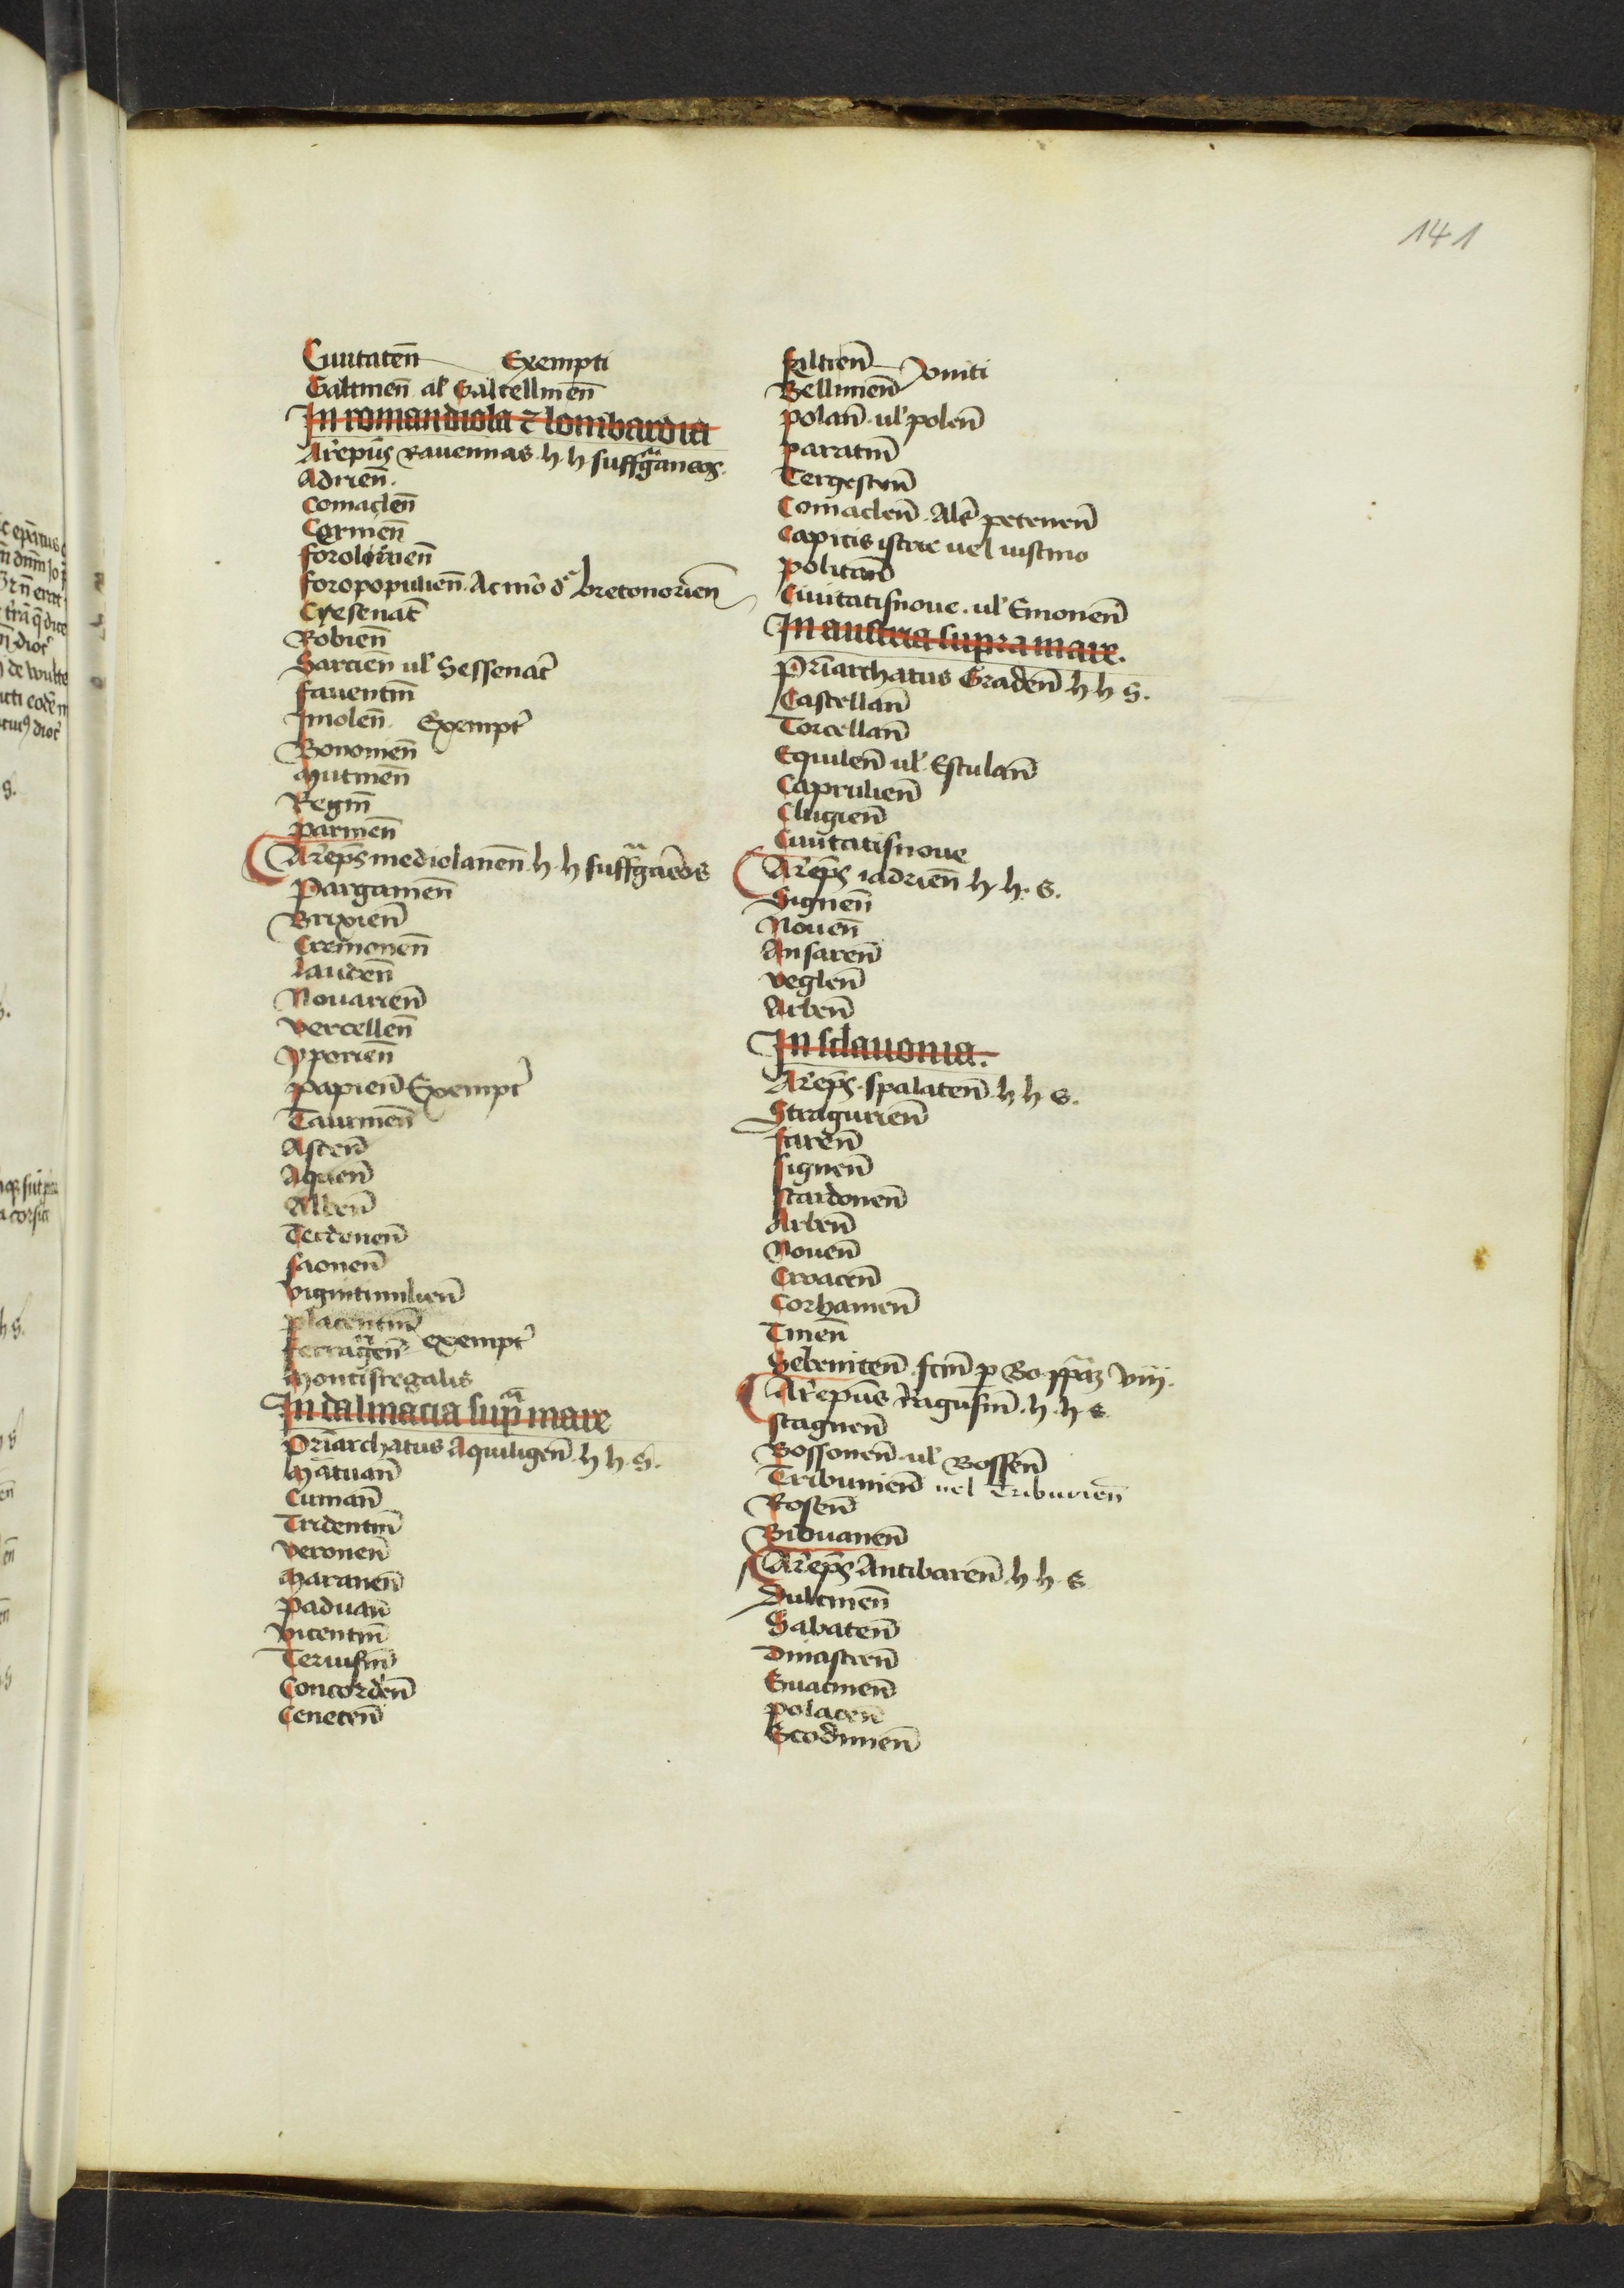 141
Ciuitateñ Exempti
Galtineñ al Galtellineñ
In romandiola & lombardia
Arepūs Rauennas h h suffraganeos
Adrieñ.
Comacleñ
Ceruieñ
foroliuieñ
foropopulieñ. Ac mō dr bretonorieñ
Cesenat
Robieñ
Sarcieñ ul Sessenat
fauentiñ
Imoleñ. Exempt
Bononieñ
Mutineñ
Regiñ
parmeñ
Areps mediolaneñ h h suffraganeos
Pargameñ
Brixieñ
Cremoneñ
laudeñ
Nouarieñ
Vercelleñ
Yporieñ
papieñ Exempt
Taurineñ
Asteñ
Aqueñ
Albeñ
Terdoneñ
saoneñ
vigintimilieñ
placentiñ
ferrareñ exempt
Montisregalis
In dalmacia supra mare
Priarchatus Aquiligeñ h h S.
Mātuañ
Cumañ
Tridentiñ
veroneñ
Maraneñ
Paduañ
vicentiñ
Teruisiñ
Concordeñ
Ceneteñ
feltreñ
Bellineñ vniti
polañ ul poleñ
paratiñ
Tergestiñ
Comacleñ. Als peteneñ
Capitis istrie uel iustino
politañ
Ciuitatisnoue. ul Emoneñ
In austria supra mare.
Priarchatus Gradeñ h h S.
Castellañ
Torcellañ
Equileñ ul Esculañ
Caprulieñ
Clugieñ
Ciuitatisnoue
Areps iadrieñ h h. S.
Signeñ
Noueñ
Ansareñ
vegleñ
Arbeñ
In sclauonia.
Areps. spalateñ h h S.
Stragurieñ
fareñ
signeñ
scardoneñ
Arbeñ
Noueñ
Croaceñ
Corbaineñ
Tineñ
Sebeniceñ. fcm p Bo ppaz viij.
Arepūs Ragusiñ. h. h S
stagneñ
Bossoneñ ul Bosseñ
Tribunieñ uel Triburieñ
Roseñ
Biduaneñ
Areps Antibareñ h h S
Dulcineñ
Sabateñ
Dinastreñ
Suacineñ
polateñ
Scodrineñ